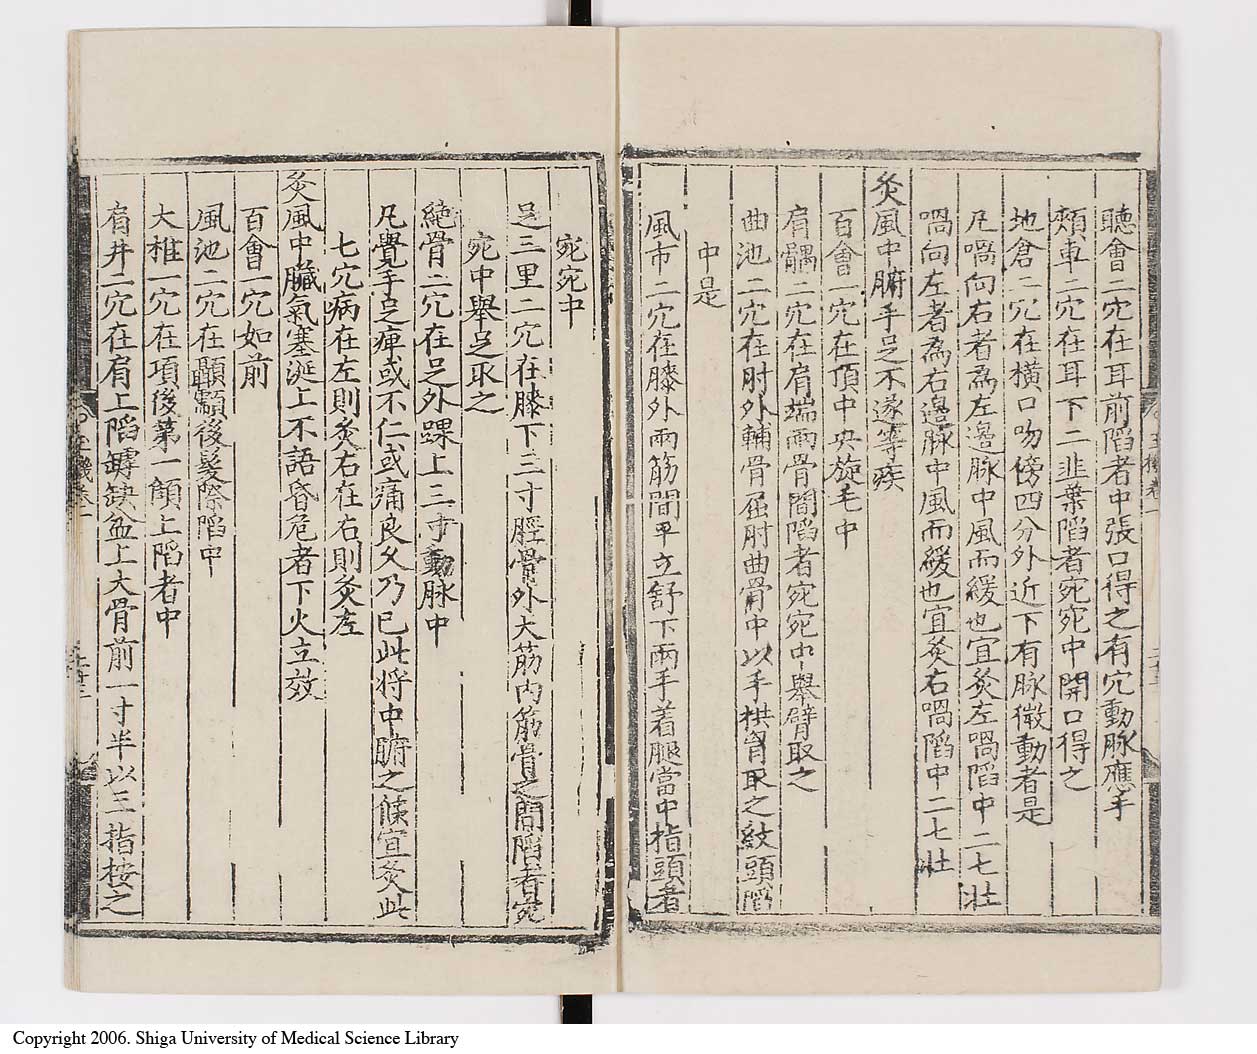 聽會二穴在耳前陷者中張口得之有穴動脉應手
頰車二穴在耳下二韭葉陷者宛宛中開口得之
地倉二穴在橫口吻傍四分外近下有脉微動者是
凡喎向右者為左邊脉中風而緩也宜灸左喎陷中二七壯
喎向左者為右邊脉中風而緩也宜灸右喎陷中二七壯
灸風中腑手足不遂等疾
百會一穴在頂中央旋毛中
肩髃二穴在肩端兩骨間陷者宛宛中舉臂取之
曲池二穴在肘外輔骨屈肘曲骨中以手拱胷取之紋頭陷
中是
風市二穴在膝外兩筋間平立舒下兩手着腿當中指頭者
宛宛中
足三里二穴在膝下三寸脛骨外大筋內筋骨之間陷者宛
宛中舉足取之
絕骨二穴在足外踝上三寸動脉中
凡覺手足痺或不仁或痛良久乃已此將中腑之候宜灸此
七穴病在左則灸右在右則灸左
灸風中臟氣塞涎上不語昏危者下火立效
百會一穴如前
風池二穴在顳顬後髮際陷中
大椎一穴在項後第一顀上陷者中
肩井二穴在肩上陷罅缺盆上大骨前一寸半以三指按之
Copyright 2006. Shiga University of Medical Science Library